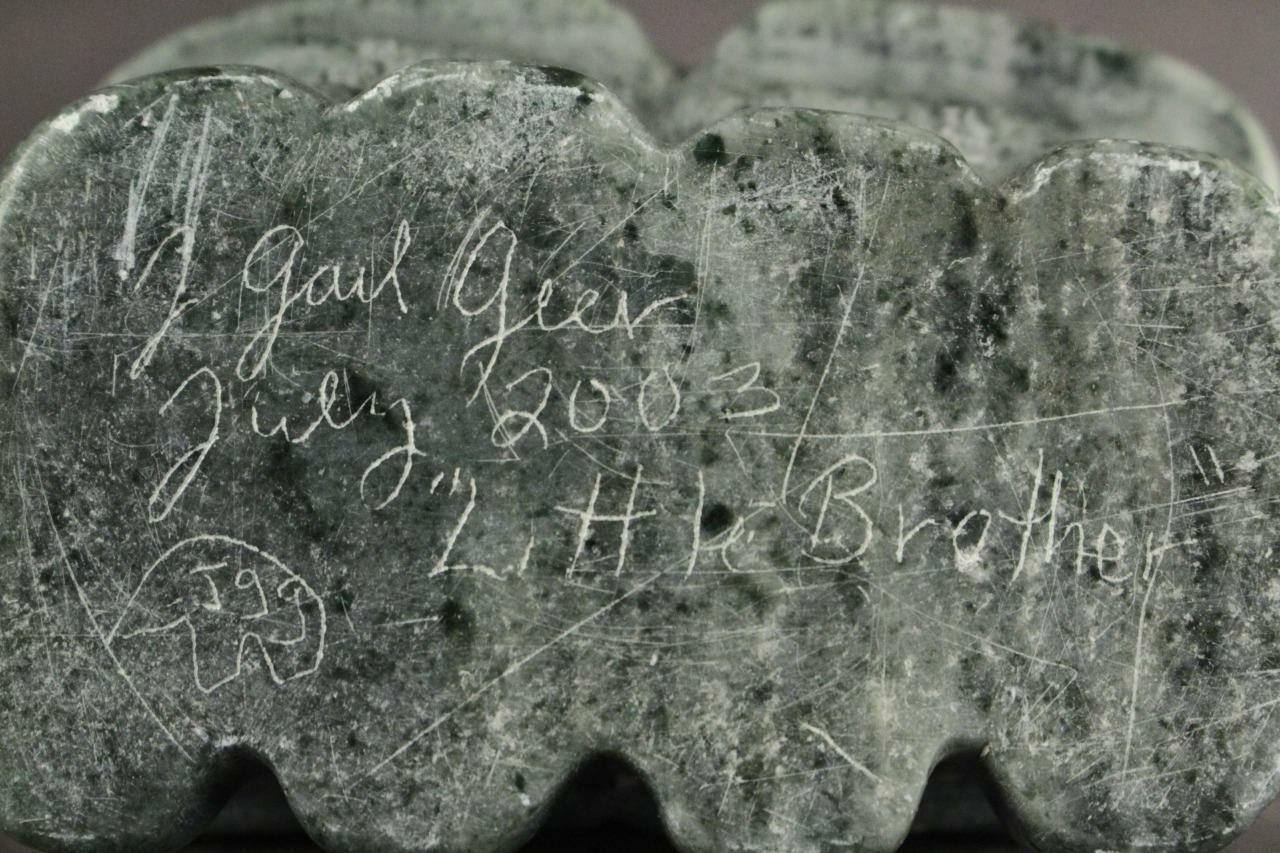 J Gail Geer
July 2003
"Little Brother"
JGG